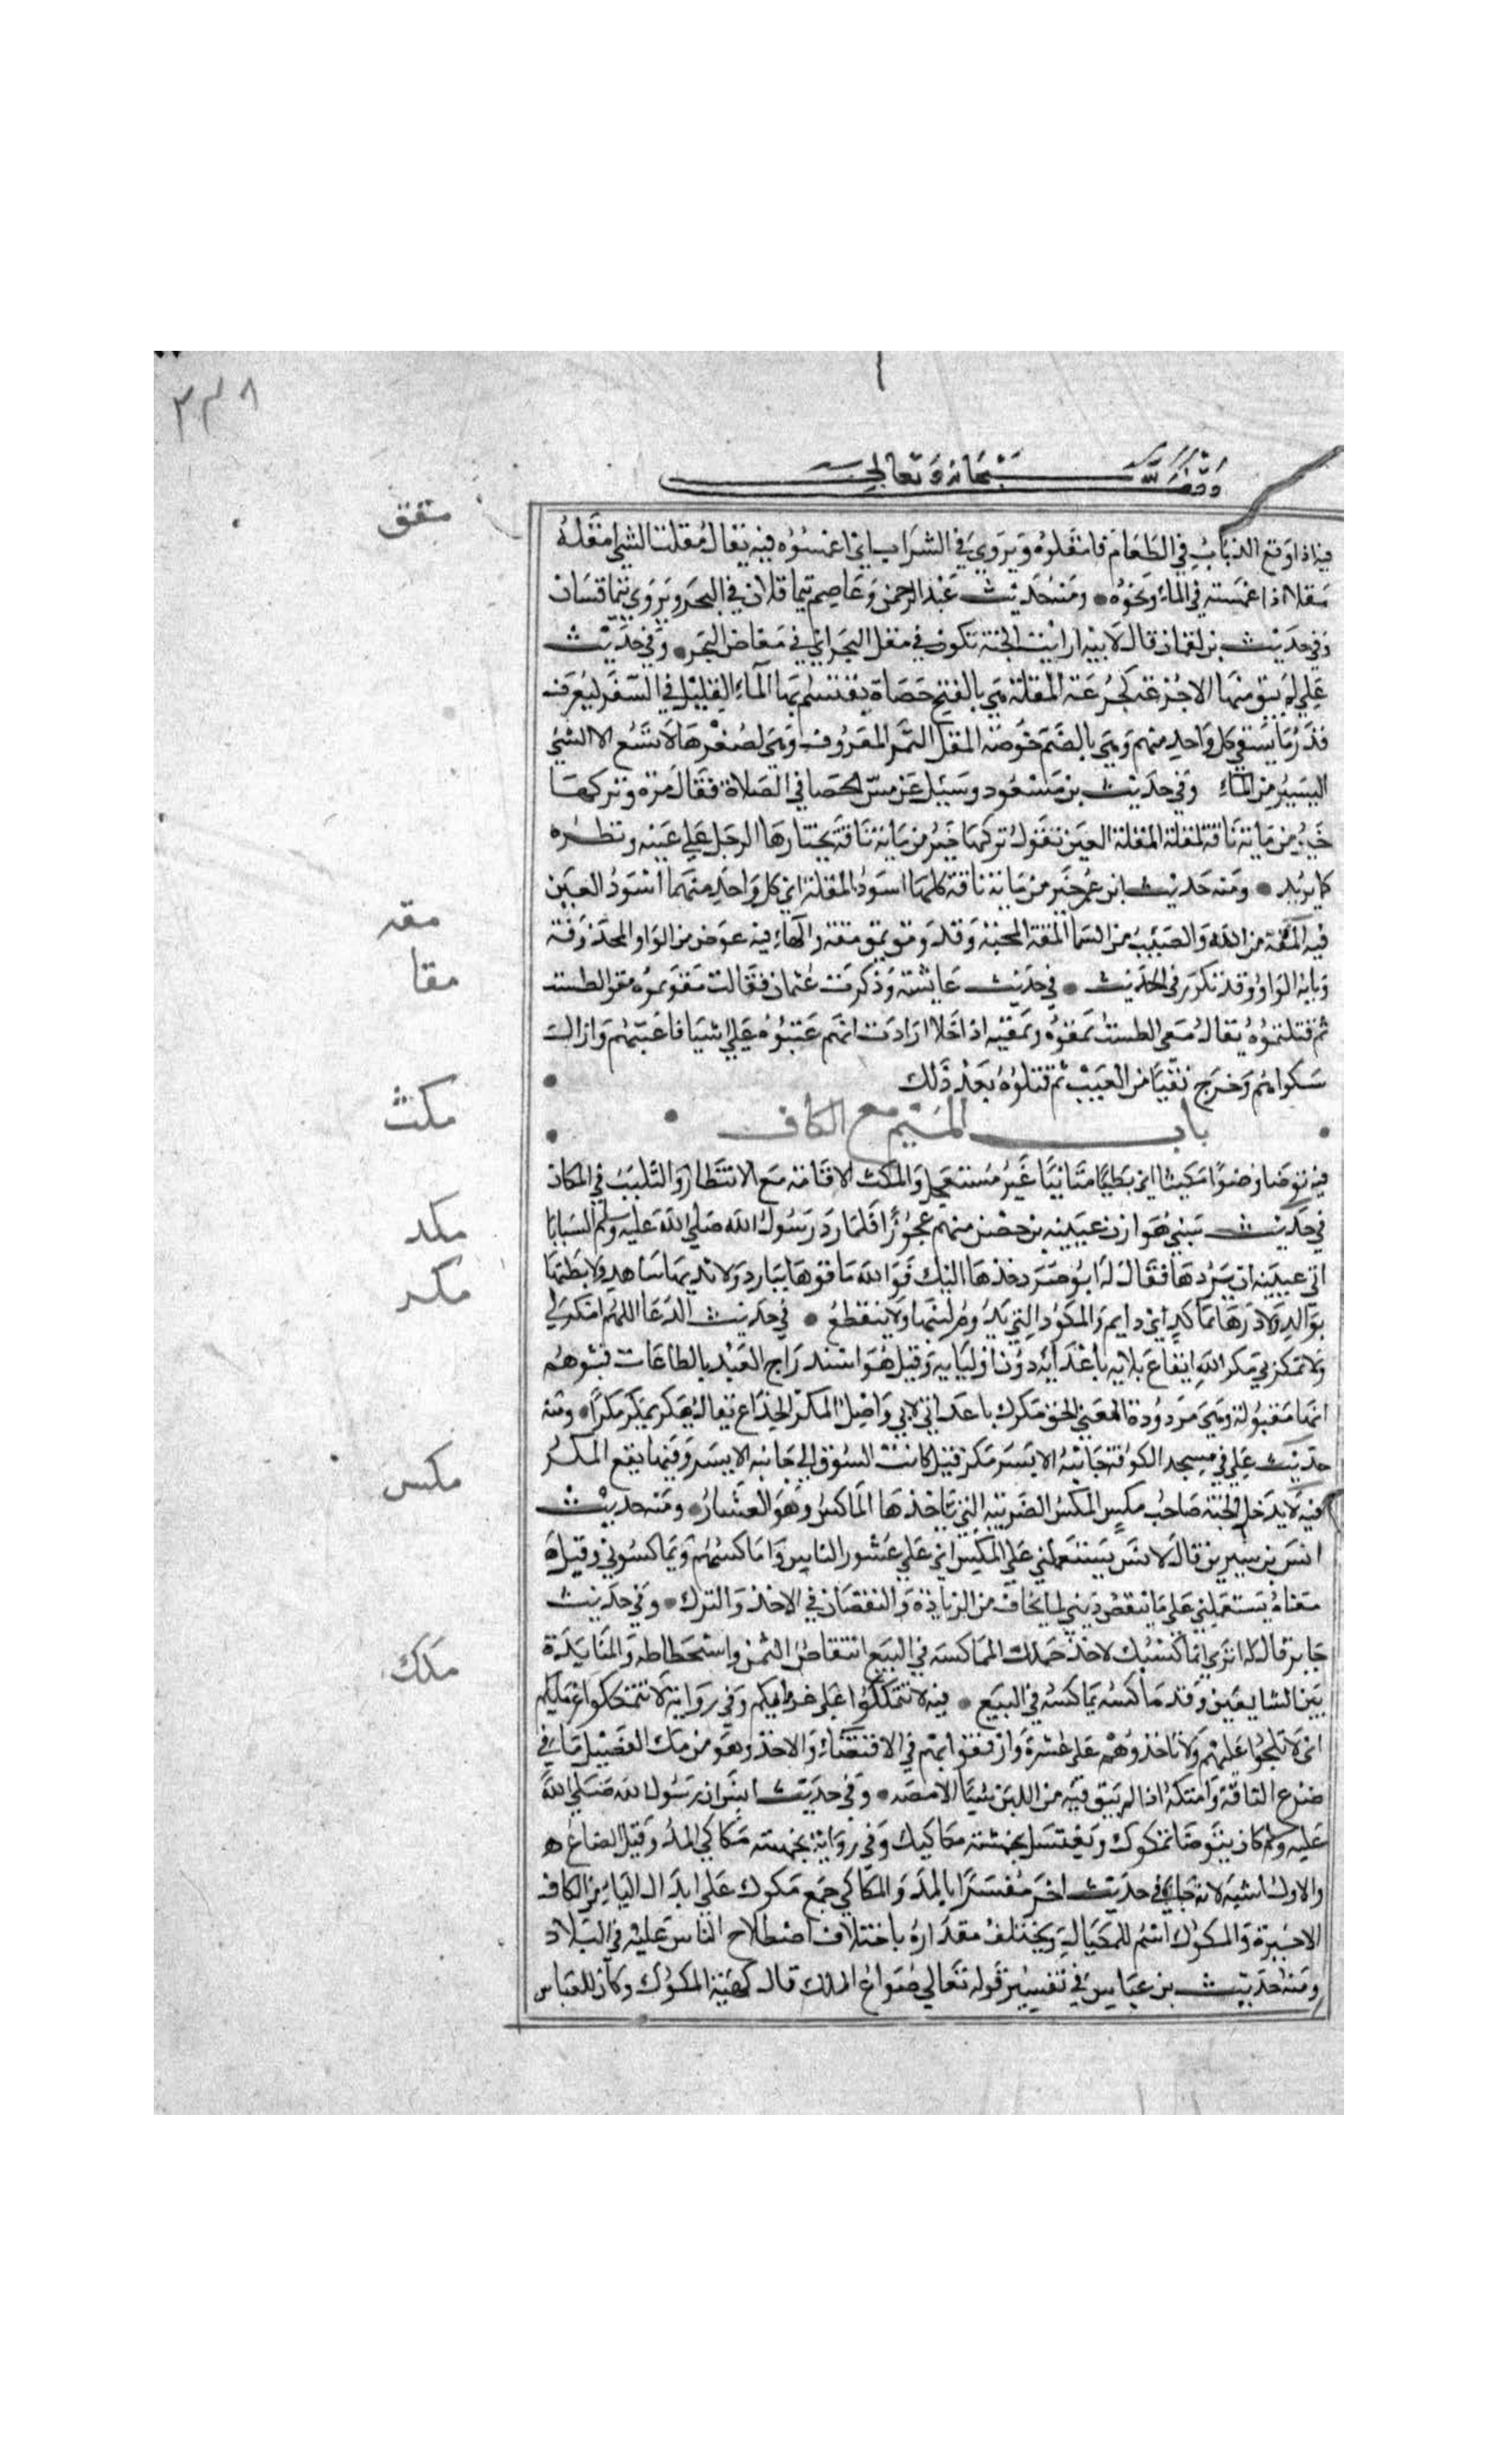 ٣٣٨
وقف لله سبحانه وتعالى
مقق
فيه اذا وقع الذباب في الطعام فامقلوه ويروي في الشراب اي اغمسوه فيه يقال مقلت الشي امقله
مقلا اذا غمسته في الماء ونحوه ومنه حديث عبد الرحمن وعاصم يتماقلان في البحر ويروي يتماقسان
وفي حديث بن لقمان قال لابيه ارايت الحبة تكون في مقل البحر اي في مغاص البحر وفي حديث
علي لم يبق منها الا جرعة كجرعة المقلة هي بالفتح حصاة يقتسم بها الماء القليل في السفر ليعرف
قدر ما يسقي كل واحد منهم وهي بالضم خوضة المقل الثمر المعروف وهي لصغرها لا تسع الا الشي
اليسير من الماء وفي حديث بن مسعود وسيل عن مس الحصا في الصلاة فقال مرة وتركها
خير من ماية ناقة لمقلة المقلة العين تقول تركها خير من ماية ناقة يختارها الرجل علي عينه ونظره
كما يريد ومنه حديث ابن عمر خير من ماية ناقة كلها اسود المقلة اي كل واحد منها اسود العين
مقه
فيه المقة من الله والصيت من السما المقة المحبة وقد ومق يمق مقة والهاء فيه عوض من الواو المحذوفة
مقا
وبابه الواو وقد تكرر في الحديث في حديث عايشة وذكرت عثمان فقالت مقوتموه مقو الطست
ثم قتلتموه يقال مقي الطست يمقوه ويمقيه اذا جلا ارادت انهم عتبوه علي اشيا فاعتبهم وازالت
شكواهم وخرج نقيا من العيب ثم قتلوه بعد ذلك
باب الميم مع الكاف
مكث
فيه توضا وضوا مكيثا اي بطيا متانيا غير مستعجل والمكث الاقامة مع الانتظار والتلبث في المكان
مكد
في حديث سبي هوازن عيينة بن حصن منهم عجوزا فلما رد رسول الله صلي الله عليه وسلم السبايا
ابي عيينة ان يردها فقال له ابو صرد خذها اليك فوالله ما فوها ببارد ولا ثديها بناهد ولا بطنها
مكر
بوالد ولا درها بماكد اي دايم والمكود التي يدوم لبنها ولا ينقطع في حديث الدعا اللهم امكر لي
ولا تمكر بي مكر الله ايقاع بلايه باعدايه دون اوليايه وقيل هو استدراج العبد بالطاعات فيتوهم
انها مقبولة وهي مردودة المعني الحق مكرك باعداي لا بي واصل المكر الخداع يقال مكر يمكر مكرا ومنه
حديث علي في مسجد الكوفة جانبه الايسر مكر قيل كانت السوق الي جانبه الايسر وفيها يقع المكر
مكس
فيه لا يدخل الجنة صاحب مكس المكس الضريبة التي ياخذها الماكس وهو العشار ومنه حديث
انس بن سيرين قال لانس يستعملني علي المكس اي علي عشور الناس واماكسهم ويماكسوني وقيل
معناه يستعملني علي ما ينقص ديني لما يخاف من الزيادة والنقصان في الاخذ والترك وفي حديث
جابر قال له اتري انما كستك لاخذ جملك المماكسة في البيع انتقاص الثمن واستحطاطه والمنابذة
مكك
بين المتبايعين وقد ماكسه يماكسه في البيع فيه لا تتمككوا علي غرمايكم وفي رواية لا تمككوا غرمايكم
اي لا تلحوا عليهم ولا تاخذوهم علي عسرة وارفقوا بهم في الاقتضاء والاخذ وهو من مك الفصيل ما في
ضرع الناقة وامتكه اذا لم يبق فيه من اللبن شيا الا مصه وفي حديث انس ان رسول الله صلي الله
عليه وسلم كان يتوضا بمكوك ويغتسل بخمسة مكاكيك وفي رواية بخمسة مكاكي المد وقيل الصاع
والاول اشبه لانه جاء في حديث اخر مفسرا بالمد والمكاكي جمع مكوك علي ابدال الياء من الكاف
الاخيرة والمكوك اسم للمكيال ويختلف مقداره باختلاف اصطلاح الناس عليه في البلاد
ومنه حديث بن عباس في تفسير قوله تعالي صواع الملك قال كهية المكوك وكان للعباس